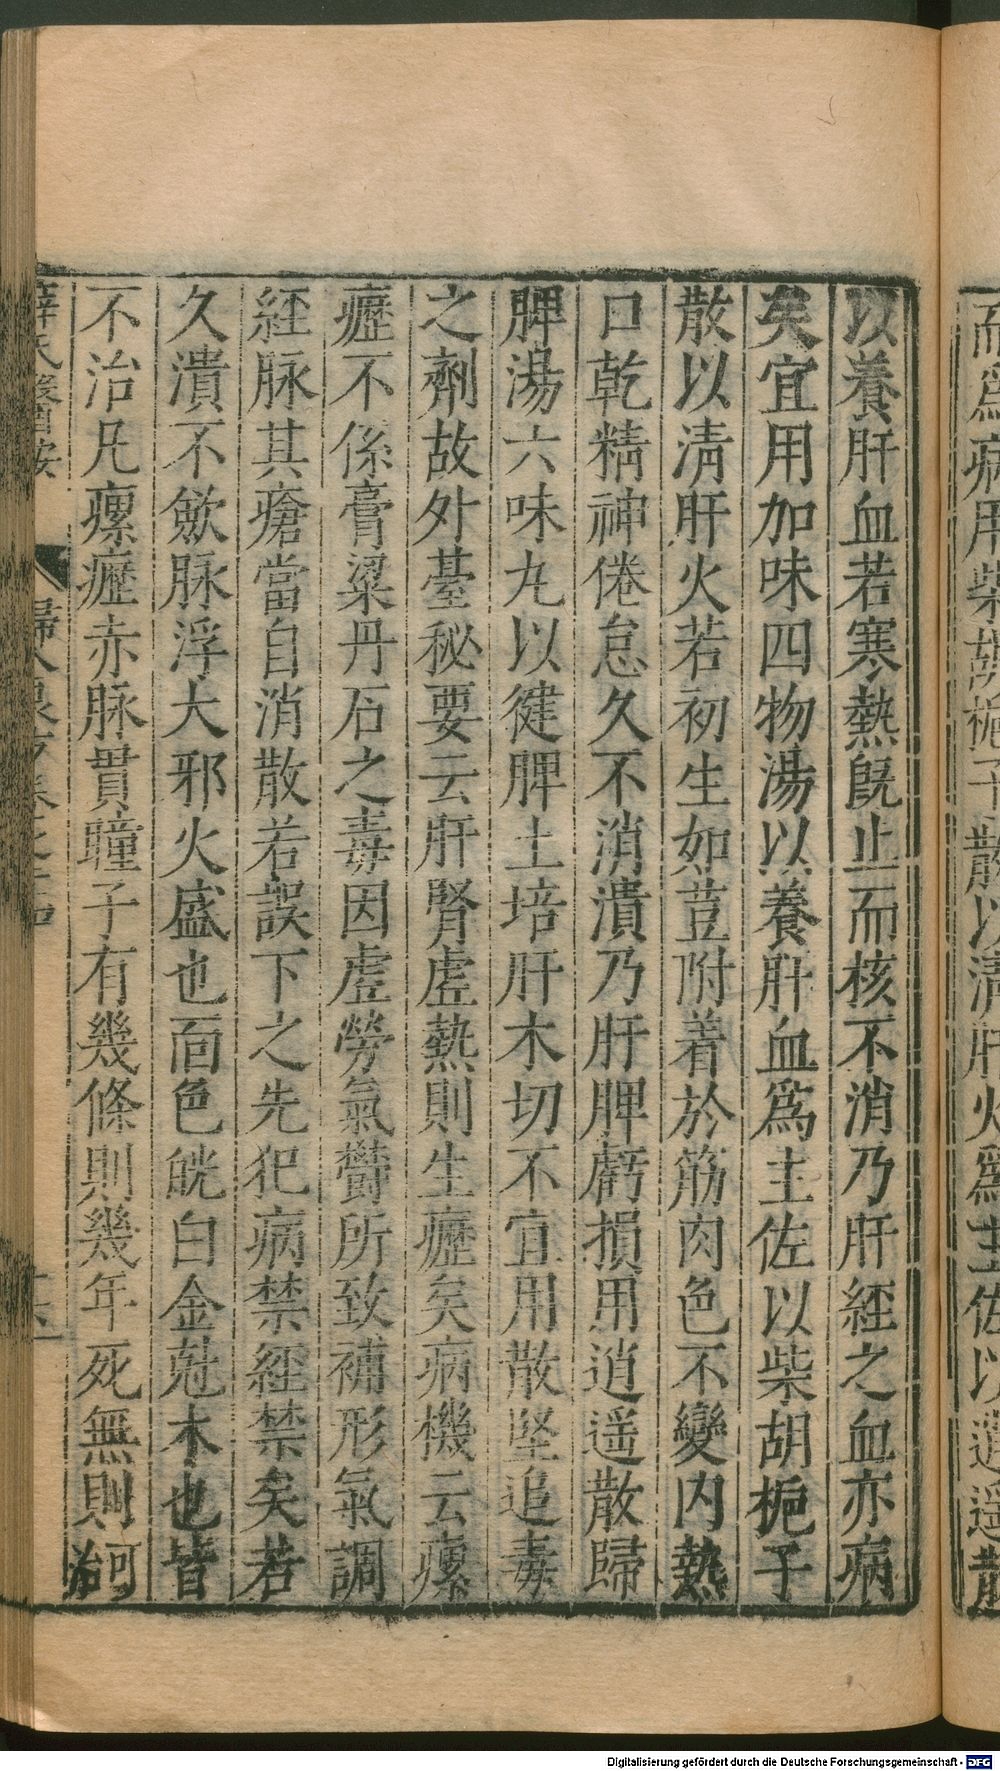 以養肝血若寒熱既止而核不消乃肝經之血亦病
矣宜用加味四物湯以養肝血爲主佐以柴胡梔子
散以清肝火若初生如荳附着於筋肉色不變內熱
口乾精神倦怠久不消潰乃肝脾虧損用逍遥散歸
脾湯六味丸以健脾土培肝木切不宜用散堅追毒
之劑故外臺秘要云肝腎虛熱則生癧矣病機云瘰
癧不係膏粱丹石之毒因虛勞氣鬱所致補形氣調
經脉其瘡當自消散若誤下之先犯病禁經禁矣若
久潰不歛脉浮大邪火盛也面色㿠白金尅木也皆
不治凡瘰癧赤脉貫瞳子有幾條則幾年死無則可治
薛氏醫按
婦人良方卷之二十四
而爲病用柴胡梔子散以清肝火爲主佐以逍遥散
Digitalisierung gefördert durch die Deutsche Forschungsgemeinschaft - DFG